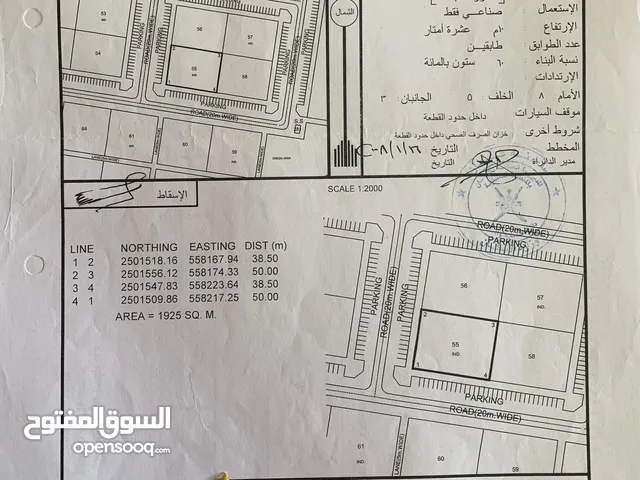 الإستعمال : صناعي فقط
الإرتفاع ١٠م عشرة أمتار
عدد الطوابق طابقين
نسبة البناء ٦٠ ستون بالمائة
الإرتدادات
الأمام ٨ الخلف ٥ الجانبان ٣
موقف السيارات داخل حدود القطعة
شروط أخرى خزان الصرف الصحي داخل حدود القطعة
المخطط التاريخ
مدير الدائرة التاريخ
الشمال
53
54
55
IND.
56
57
IND.
58
PARKING
PARKING
PARKING
ROAD(20m.WIDE)
ROAD(20m.WIDE)
64
61
60
59
GREEN AREA
الإسقاط
SCALE 1:2000
LINE NORTHING EASTING DIST (m)
1 2 2501518.16 558167.94 38.50
2 3 2501556.12 558174.33 50.00
3 4 2501547.83 558223.64 38.50
4 1 2501509.86 558217.25 50.00
AREA = 1925 SQ. M.
ROAD(20m.WIDE)
PARKING
PARKING
ROAD(20m.WIDE)
56
57
IND.
2 3
55
IND.
1 4
58
PARKING
ROAD(20m.WIDE)
61
IND.
LANE(5m.WIDE)
60
59
السوق المفتوح
opensooq.com